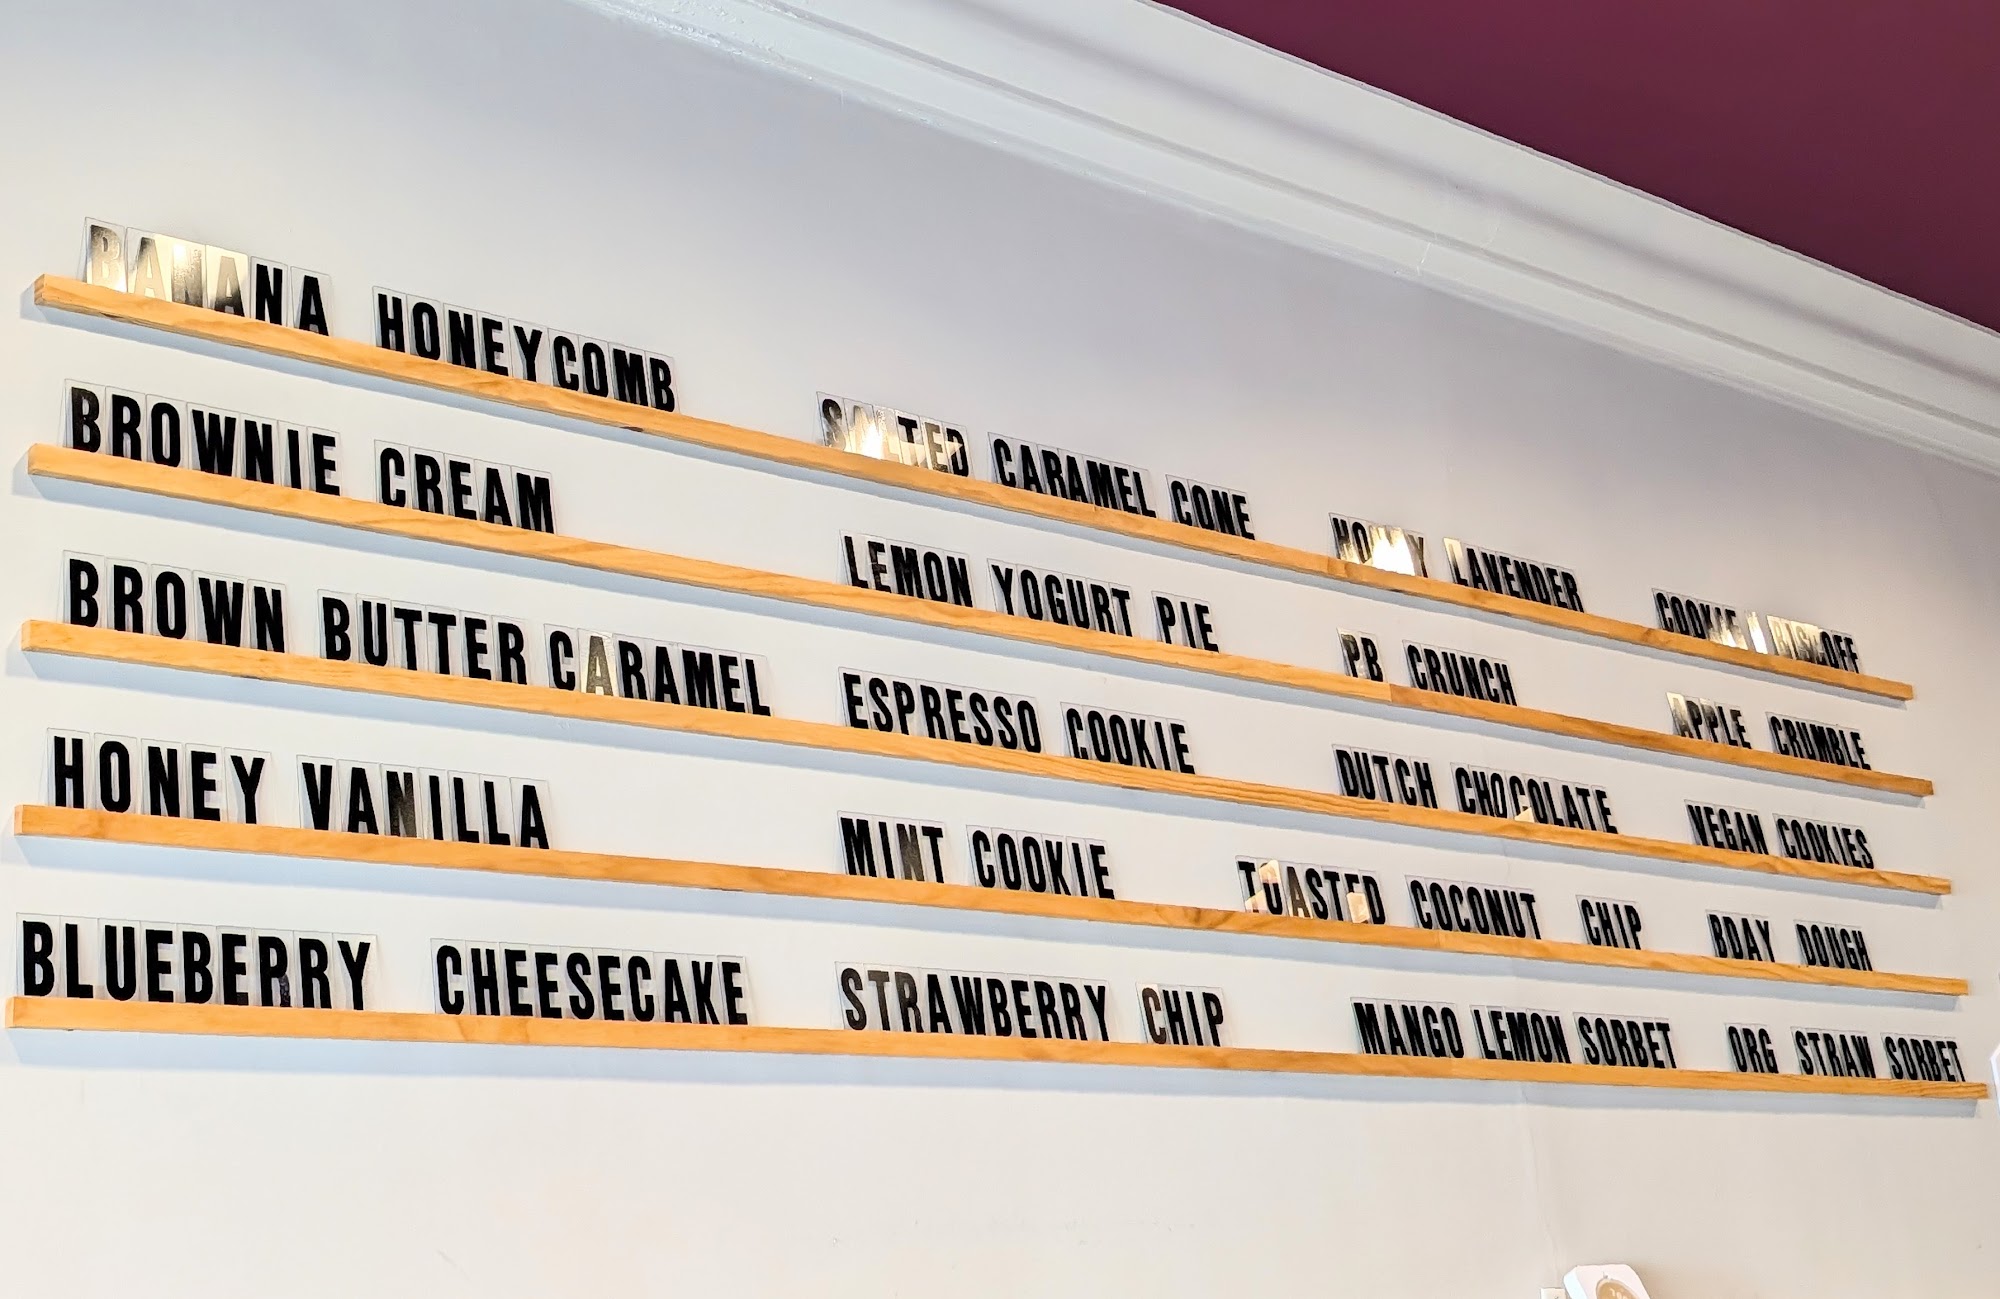 BANANA HONEYCOMB SALTED CARAMEL CONE HONEY LAVENDER COOKIE BISCOFF
BROWNIE CREAM LEMON YOGURT PIE PB CRUNCH APPLE CRUMBLE
BROWN BUTTER CARAMEL ESPRESSO COOKIE DUTCH CHOCOLATE VEGAN COOKIES
HONEY VANILLA MINT COOKIE TOASTED COCONUT CHIP BDAY DOUGH
BLUEBERRY CHEESECAKE STRAWBERRY CHIP MANGO LEMON SORBET ORG STRAW SORBET